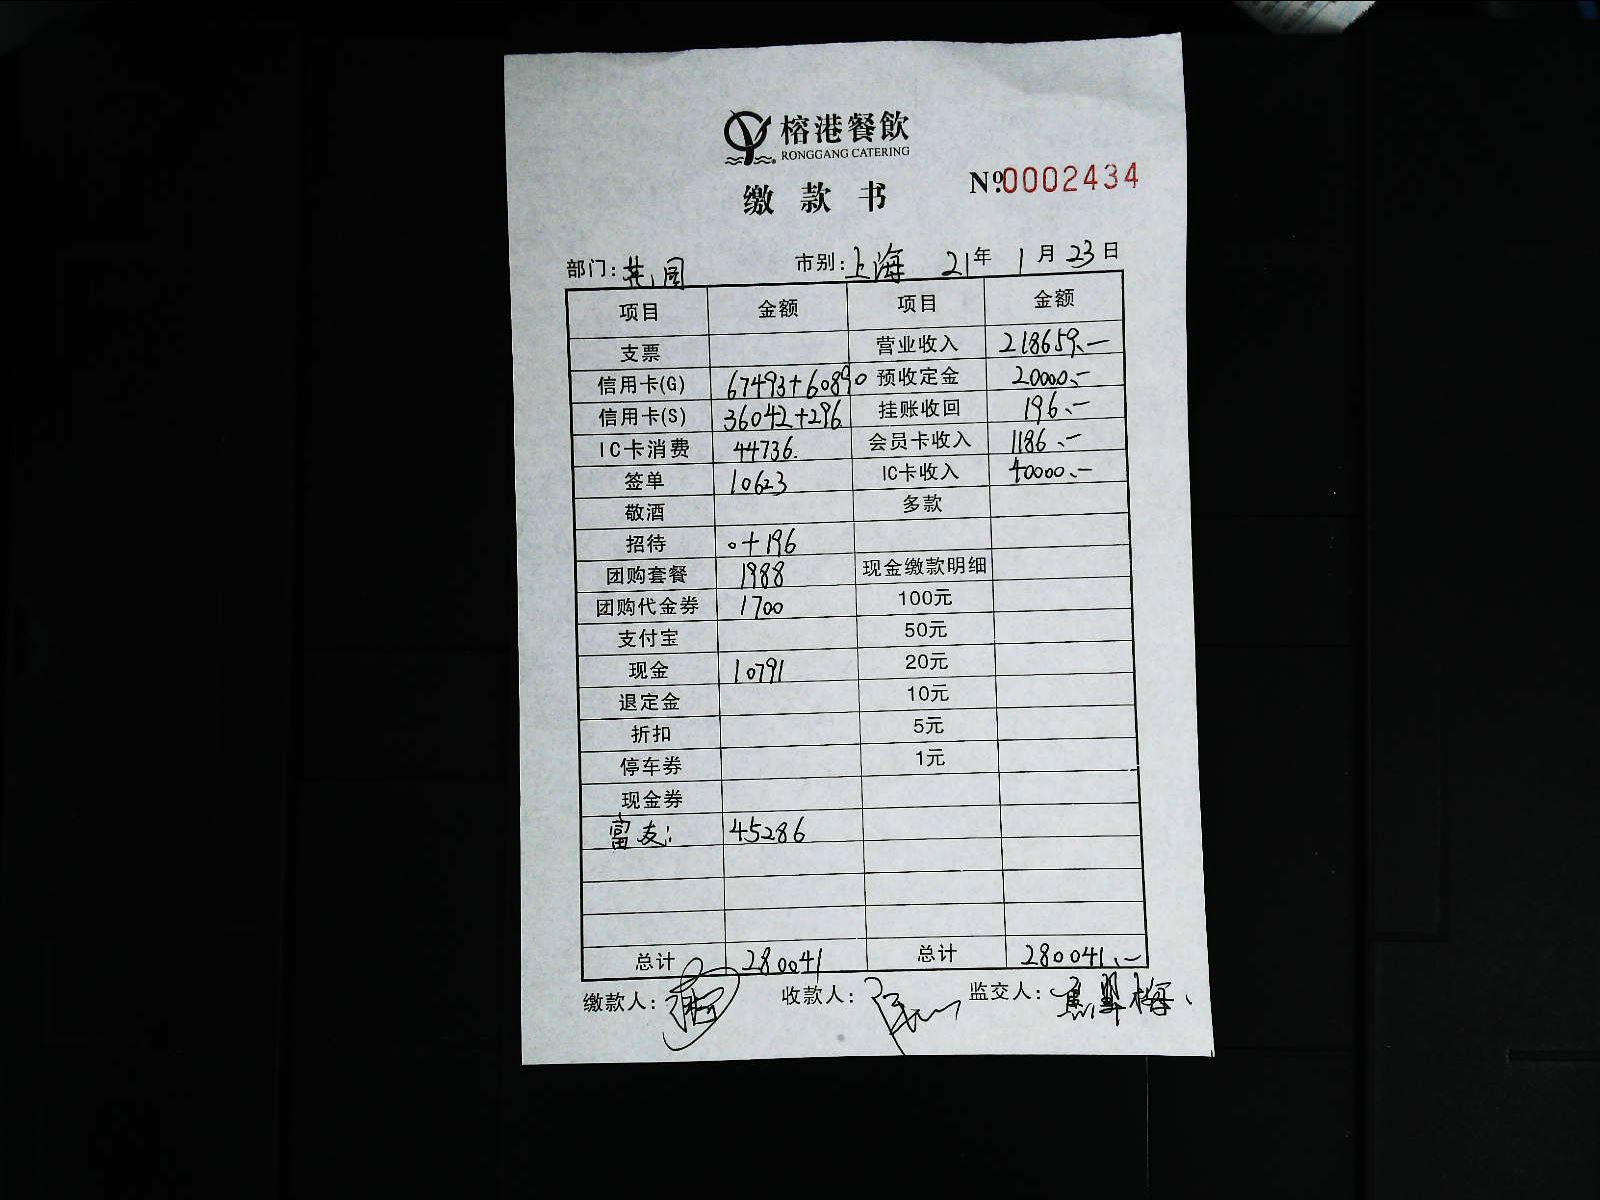 榕港餐飲
RONGGANG CATERING
缴款书
№0002434
部门: 市别:上海 21年 1月23日
项目 金额 项目 金额
支票 营业收入 218659.-
信用卡(G) 67493+60890 预收定金 20000.-
信用卡(S) 36042+296 挂账收回 196.-
IC卡消费 44736. 会员卡收入 1186.-
签单 10623 IC卡收入 40000.-
敬酒 多款
招待 0+196
团购套餐 1988 现金缴款明细
团购代金券 1700 100元
支付宝 50元
现金 10791 20元
退定金 10元
折扣 5元
停车券 1元
现金券
富友: 45286
总计 280041 总计 280041.-
缴款人: 收款人: 监交人:焦翠梅